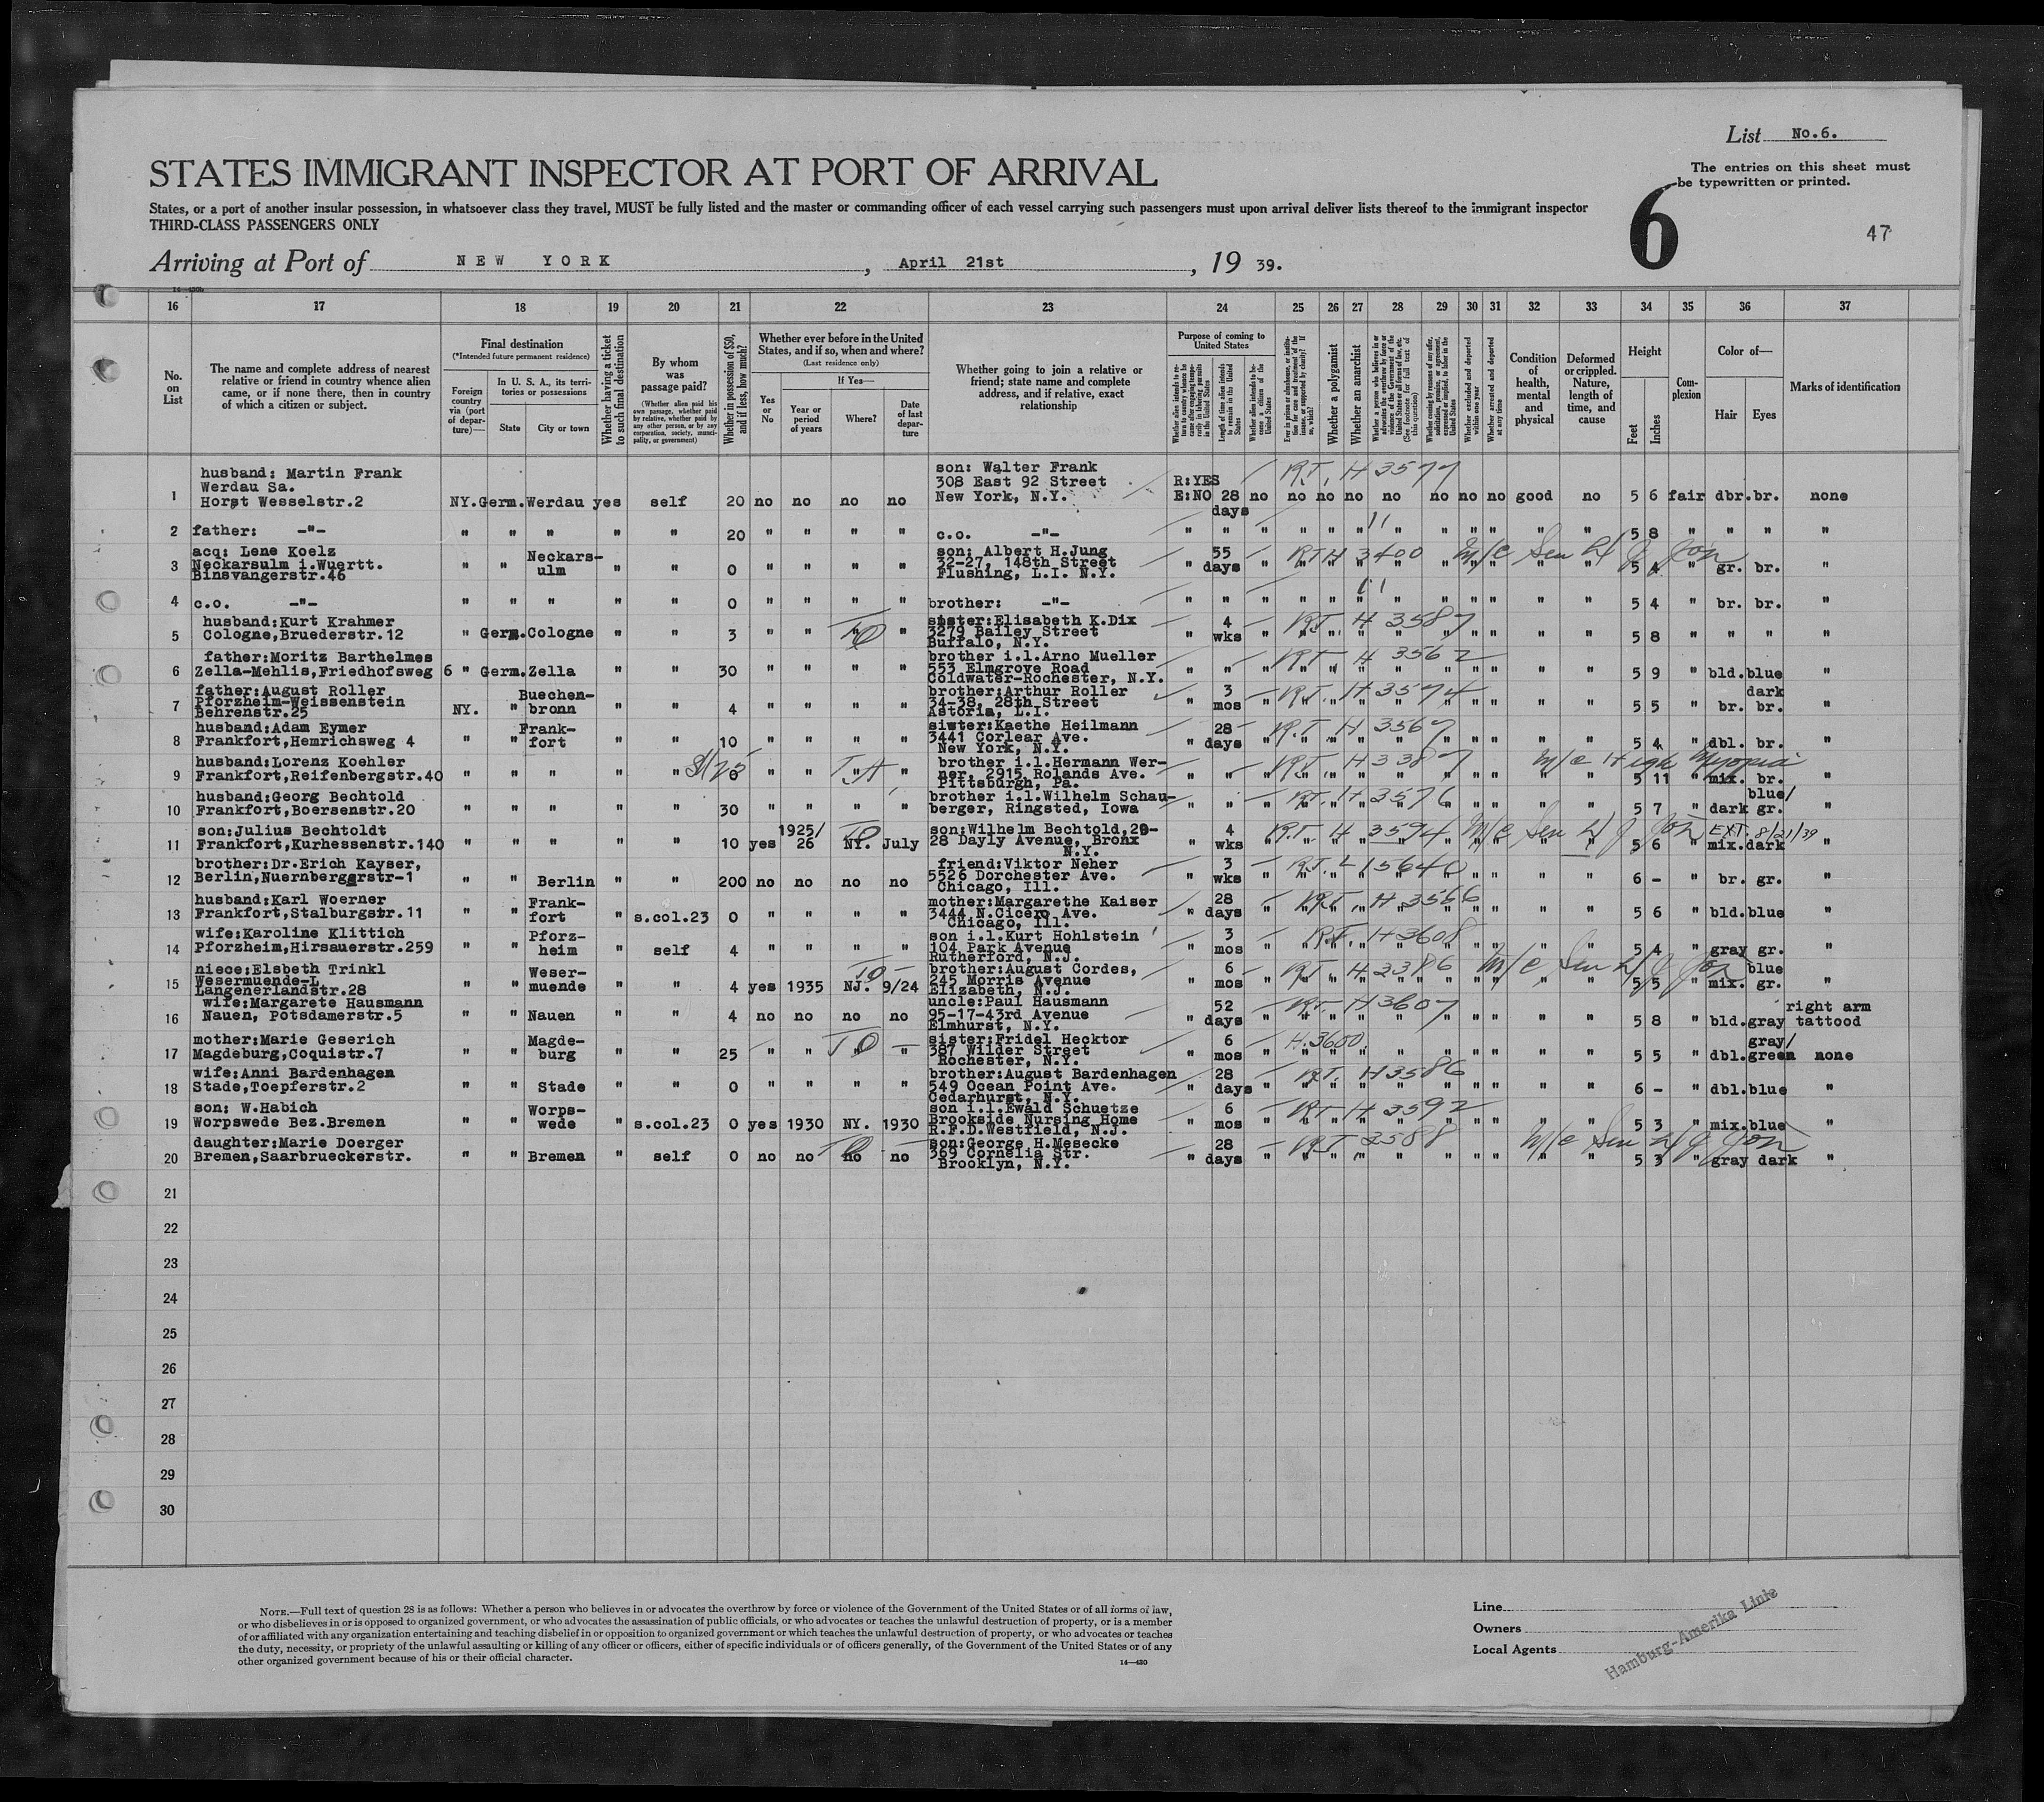 List No.6.
STATES IMMIGRANT INSPECTOR AT PORT OF ARRIVAL
The entries on this sheet must
be typewritten or printed.
States, or a port of another insular possession, in whatsoever class they travel, MUST be fully listed and the master or commanding officer of each vessel carrying such passengers must upon arrival deliver lists thereof to the immigrant inspector
THIRD-CLASS PASSENGERS ONLY
6
47
Arriving at Port of NEW YORK, April 21st, 1939.
16 17 18 19 20 21 22 23 24 25 26 27 28 29 30 31 32 33 34 35 36 37
No. on List
The name and complete address of nearest relative or friend in country whence alien came, or if none there, then in country of which a citizen or subject.
Final destination
(*Intended future permanent residence)
Foreign country via (port of departure)—
In U. S. A., its territories or possessions
State
City or town
Whether having a ticket to such final destination
By whom was passage paid?
(Whether alien paid his own passage, whether paid by relative, whether paid by any other person, or by any corporation, society, municipality, or government)
Whether in possession of $50, and if less, how much?
Whether ever before in the United States, and if so, when and where?
(Last residence only)
Yes or No
If Yes—
Year or period of years
Where?
Date of last departure
Whether going to join a relative or friend; state name and complete address, and if relative, exact relationship
Purpose of coming to United States
Length of time alien intends to remain in the United States
Whether alien intends to become a citizen of the United States
Whether a polygamist
Whether an anarchist
Whether excluded and deported within one year
Whether arrested and deported at any time
Condition of health, mental and physical
Deformed or crippled. Nature, length of time, and cause
Height
Feet
Inches
Complexion
Color of—
Hair
Eyes
Marks of identification
1 husband: Martin Frank Werdau Sa. Horst Wesselstr.2 NY. Germ. Werdau yes self 20 no no no no son: Walter Frank 308 East 92 Street New York, N.Y. R:YES E:NO 28 days no no no no no no no no good no 5 6 fair dbr. br. none R.T. H 3577
2 father: -"- " " " " " 20 " " " " c.o. -"- " " " " " " " " " " " " 5 8 " " " "
3 acq: Lene Koelz Neckarsulm i.Wuertt. Binsvangerstr.46 " " Neckars-ulm " " 0 " " " " son: Albert H.Jung 32-27, 148th Street Flushing, L.I. N.Y. " 55 days " " " " " " " " " " 5 4 " gr. br. " RT H 3400
4 c.o. -"- " " " " " 0 " " " " brother: -"- " " " " " " " " " " " " 5 4 " br. br. "
5 husband:Kurt Krahmer Cologne,Bruederstr.12 " Germ. Cologne " " 3 " " " " sister:Elisabeth K.Dix 3279 Bailey Street Buffalo, N.Y. " 4 wks " " " " " " " " " " 5 8 " " " " RT H 3587
6 father:Moritz Barthelmes Zella-Mehlis,Friedhofsweg 6 " Germ. Zella " " 30 " " " " brother i.l.Arno Mueller 553 Elmgrove Road Coldwater-Rochester, N.Y. " " " " " " " " " " " " 5 9 " bld. blue " RT H 3562
7 father:August Roller Pforzheim-Weissenstein Behrenstr.25 NY. " Buechen-bronn " " 4 " " " " brother:Arthur Roller 34-38, 28th Street Astoria, L.I. " 3 mos " " " " " " " " " " 5 5 " br. dark br. " R.T. H 3574
8 husband:Adam Eymer Frankfort,Hemrichsweg 4 " " Frank-fort " " 10 " " " " sister:Kaethe Heilmann 3441 Corlear Ave. New York, N.Y. " 28 days " " " " " " " " " " 5 4 " dbl. br. " R.T. H 3567
9 husband:Lorenz Koehler Frankfort,Reifenbergstr.40 " " " " " " " " " brother i.l.Hermann Werner, 2915 Rolands Ave. Pittsburgh, Pa. " " " " " " " " " " " " 5 11 " mix. br. " RT H 3387 M/c High Myopia
10 husband:Georg Bechtold Frankfort,Boersenstr.20 " " " " " 30 " " " " brother i.l.Wilhelm Schauberger, Ringsted, Iowa " " " " " " " " " " " " 5 7 " dark blue/gr. " RT. H 3576
11 son:Julius Bechtoldt Frankfort,Kurhessenstr.140 " " " " " 10 yes 1925/26 NY. July son:Wilhelm Bechtold,20-28 Dayly Avenue, Bronx N.Y. " 4 wks " " " " " " " " " " 5 6 " mix. dark " R.T. H 3594 EXT. 8/21/39
12 brother:Dr.Erich Kayser, Berlin,Nuernbergerstr-1 " " Berlin " " 200 no no no no friend:Viktor Neher 5526 Dorchester Ave. Chicago, Ill. " 3 wks " " " " " " " " " " 6 - " br. gr. " R.T. L 15640
13 husband:Karl Woerner Frankfort,Stalburgstr.11 " " Frank-fort " s.col.23 0 " " " " mother:Margarethe Kaiser 3444 N.Cicero Ave. Chicago, Ill. " 28 days " " " " " " " " " " 5 6 " bld. blue " RT H 3566
14 wife:Karoline Klittich Pforzheim,Hirsauerstr.259 " " Pforz-heim " self 4 " " " " son i.l.Kurt Hohlstein 104 Park Avenue Rutherford, N.J. " 3 mos " " " " " " " " " " 5 4 " gray gr. " R.T. H 3608
15 niece:Elsbeth Trinkl Wesermuende-L Langenerlandstr.28 " " Weser-muende " " 4 yes 1935 NJ. 9/24 brother:August Cordes, 245 Morris Avenue Elizabeth, N.J. " 6 mos " " " " " " " " " " 5 5 " mix. blue gr. " RT H 3386
16 wife:Margarete Hausmann Nauen, Potsdamerstr.5 " " Nauen " " 4 no no no no uncle:Paul Hausmann 95-17-43rd Avenue Elmhurst, N.Y. " 52 days " " " " " " " " " " 5 8 " bld. gray right arm tattood RT. H 3607
17 mother:Marie Geserich Magdeburg,Coquistr.7 " " Magde-burg " " 25 " " " " sister:Fridel Hecktor 387 Wilder Street Rochester, N.Y. " 6 mos " " " " " " " " " " 5 5 " dbl. gray/green none H.3600
18 wife:Anni Bardenhagen Stade,Toepferstr.2 " " Stade " " 0 " " " " brother:August Bardenhagen 549 Ocean Point Ave. Cedarhurst, N.Y. " 28 days " " " " " " " " " " 6 - " dbl. blue " RT. H 3586
19 son: W.Habich Worpswede Bez.Bremen " " Worps-wede " s.col.23 0 yes 1930 NY. 1930 son i.l.Ewald Schuetze Brookside Nursing Home R.F.D.Westfield, N.J. " 6 mos " " " " " " " " " " 5 3 " mix. blue " RT H 3592
20 daughter:Marie Doerger Bremen,Saarbrueckerstr. " " Bremen " self 0 no no no no son:George H.Mesecke 369 Cornelia Str. Brooklyn, N.Y. " 28 days " " " " " " " " " " 5 3 " gray dark " RT 3588
21
22
23
24
25
26
27
28
29
30
NOTE.—Full text of question 28 is as follows: Whether a person who believes in or advocates the overthrow by force or violence of the Government of the United States or of all forms of law,
or who disbelieves in or is opposed to organized government, or who advocates the assassination of public officials, or who advocates or teaches the unlawful destruction of property, or is a member
of or affiliated with any organization entertaining and teaching disbelief in or opposition to organized government or which teaches the unlawful destruction of property, or who advocates or teaches
the duty, necessity, or propriety of the unlawful assaulting or killing of any officer or officers, either of specific individuals or of officers generally, of the Government of the United States or of any
other organized government because of his or their official character.
14—430
Line
Owners
Local Agents
Hamburg-Amerika Linie